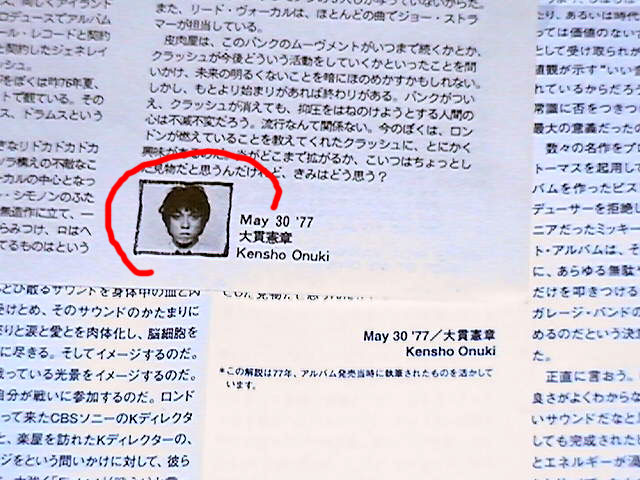 また、リード・ヴォーカルは、ほとんどの曲でジョー・ストラ
マーが担当している。
皮肉屋は、このパンクのムーヴメントがいつまで続くかとか、
クラッシュが今後どういう活動をしていくかといったことを問
いかけ、未来の明るくないことを暗にほのめかすかもしれない。
しかし、もとより始まりがあれば終わりがある。パンクがつい
え、クラッシュが消えても、抑圧をはねのけようとする人間の
心は不滅不変だろう。流行なんて関係ない。今のぼくは、ロン
ドンが燃えていることを教えてくれたクラッシュに、とにかく
興味があるのだ。
どこまで拡がるか、こいつはちょっとし
た見物だと思うんだけれど、きみはどう思う？
May 30 '77
大貫憲章
Kensho Onuki
May 30 '77／大貫憲章
Kensho Onuki
＊この解説は77年、アルバム発売当時に執筆されたものを活かして
います。
同じくアイランド
ロデュースでアルバム
ール・レコードと契約
と契約したジェネレイ
ッシュ。
をぼくは昨76年夏、
トで観ている。その
ス、ドラムスという
きなリドカドカ
ヅラ構えの不敵なこ
ーカルの中心となっ
・シモノンのふた
無造作に立て、一
らみつけ、ロはへ
てるものはという
とび散るサウンドを身体中の血と肉
受けとめ、そのサウンドのかたまりに
怒りと涙と愛とを肉体化し、脳細胞を
に尽きる。そしてイメージするのだ。
戦っている光景をイメージするのだ。
自分が戦いに参加するのだ。ロンド
って来たCBSソニーのKディレクタ
と、楽屋を訪れたKディレクターの、
ジをという問いかけに対して、彼ら
たり、あるいは時代
っては価値のない
として受け取られか
値観が示す"いい音
れているからだろう
常識に否をつきつ
最大の意義だった
数々の名作をプロ
トーマスを起用して
バムを作ったピス
デューサーを拒絶し
ニアだったミッキー
ト・アルバムは、そ
に、あらゆる無駄
だけを叩きつける
ガレージ・バンドの
めるのだという決
た。
正直に言おう。
良さがよくわからな
いサウンドだなと
しても完成された
とエネルギーが渦